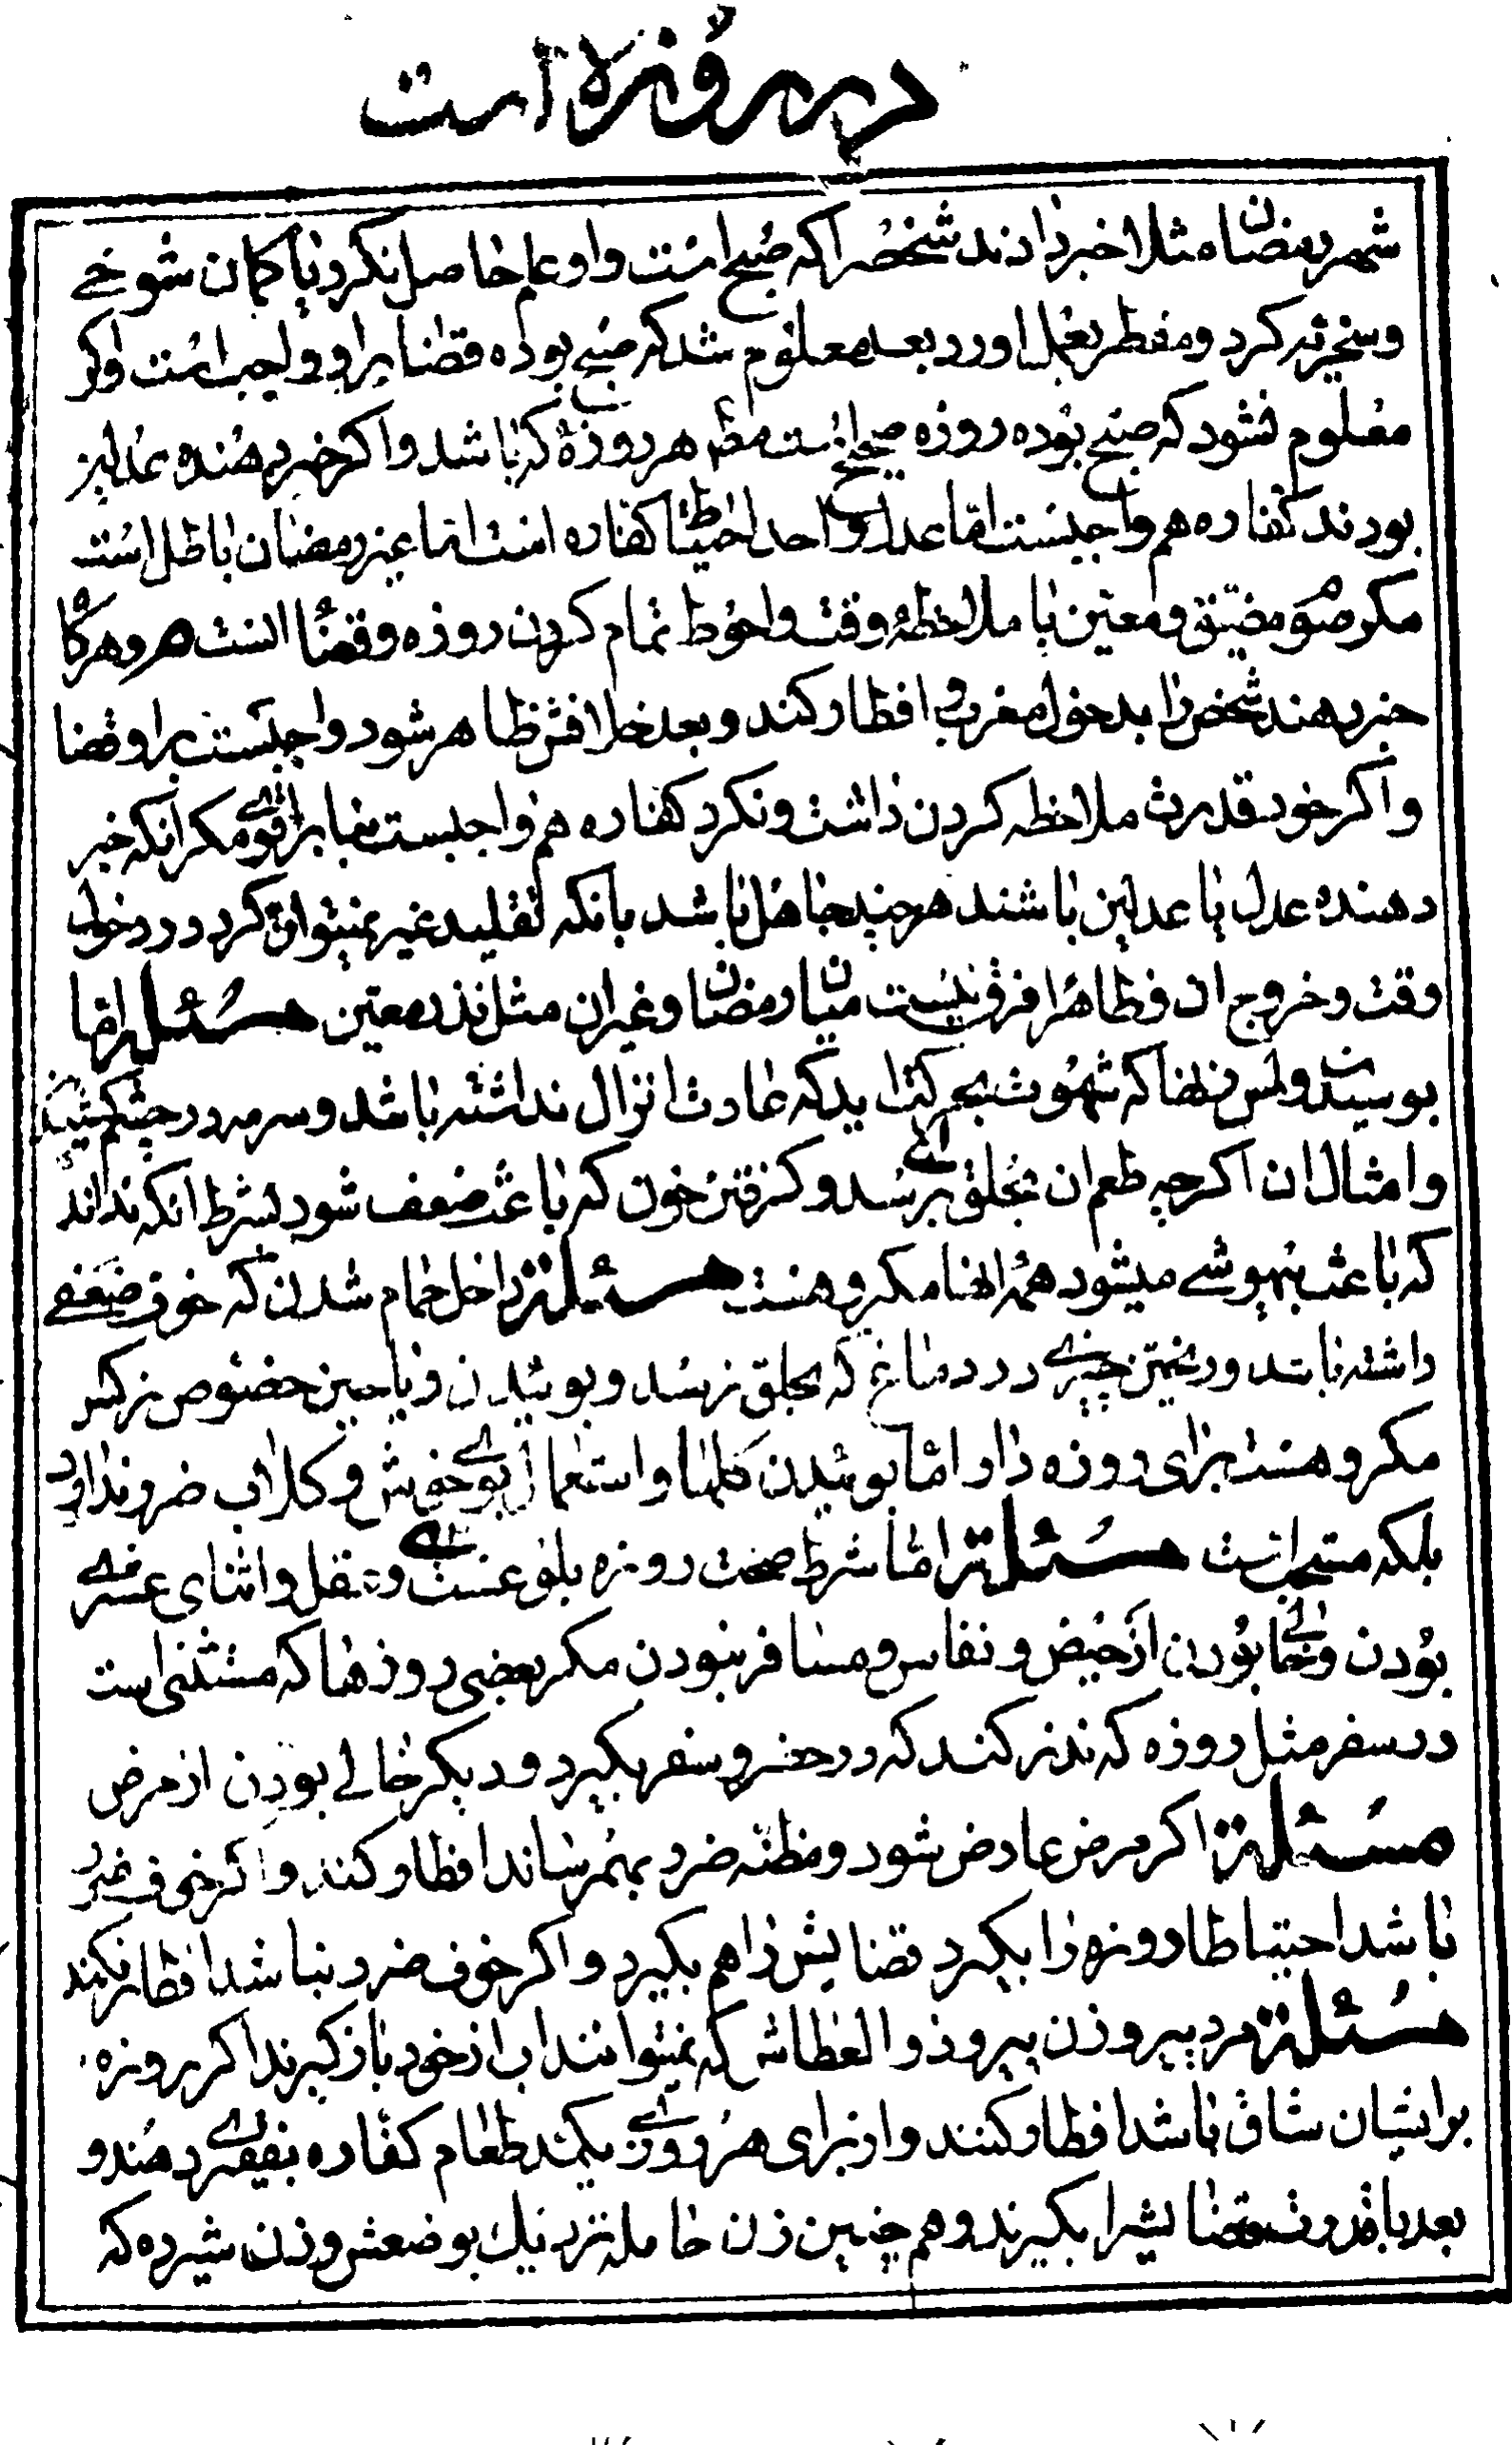 در روزه است
شهر رمضان مثلا خبر دادند شخصرا که صبح است و او علم حاصل نکرد یا کمان شوخی
و سخریه کرد و مفطر بعمل اورد بعد معلوم شد که صبح بوده قضا بر او واجب است و اکر
معلوم نشود که صبح بوده روزه صحیح است هر روزهٔ که باشد و اکر خبر دهنده عدلین
بودند کفاره هم واجبست اما عدل واحد احتیاطا کفاره است اما غیر رمضان باطل است
مکر صوم مضیق و معین با ملاحظهٔ وقت و احوط تمام کردن روزه و قضا است و هرکاه
خبر دهند شخص را بدخول مغرب و افطار کند و بعد خلافش ظاهر شود واجبست بر او قضا
و اکر خود قدرت ملاحظه کردن داشت و نکرد کفاره هم واجبست بنا بر اقوی مکر انکه خبر
دهنده عدل یا عدلین باشند هر چند جاهل باشد بانکه تقلید غیر نمیتوان کرد در دخول
وقت و خروج ان و ظاهرا فرقی نیست میان رمضان و غیر ان مثل نذر معین مسئله اما
بوسیدن و لمس زنها که شهوت بحرکت اید که عادت انزال نداشته باشد و سرمه در چشم کشیدن
و امثال ان اکر چه طعم ان بحلق برسد و کرفتن خون که باعث ضعف شود بشرط انکه نداند
که باعث بیهوشی میشود همهٔ اینها مکروهست مسئلة داخل حمام شدن که خوف ضعفی
داشته باشد و ریختن چیزی در دماغ که بحلق نرسد و بوئیدن ریاحین خصوص نرکس
مکروهست برای روزه دار اما بوئیدن کلها و استعمال بوی خوش و کلاب ضرر ندارد
بلکه مستحب است مسئلة اما شرط صحت روزه بلوغست و عقل و اثنای عشری
بودن و خالی بودن از حیض و نفاس و مسافر نبودن مکر بعضی روزها که مستثنی است
در سفر مثل روزه که نذر کند که در حضر و سفر بکیرد و دیکر خالی بودن از مرض
مسئلة اکر مرض عارض شود و مظنه ضرر بهمرساند افطار کند و اکر خوف ضرر
باشد احتیاطا روزه را بکیرد قضایش را هم بکیرد و اکر خوف ضرر نباشد افطار نکند
مسئلة مرد پیر و زن پیر و ذو العطاش که نمیتوانند اب از خود باز کیرند اکر روزه
بر ایشان شاق باشد افطار کنند و از برای هر روزی یکمد طعام کفاره بفقیری دهند و
بعد با قدرت قضایشرا بکیرند و هم چنین زن حامله نزدیک بوضعش و زن شیرده که